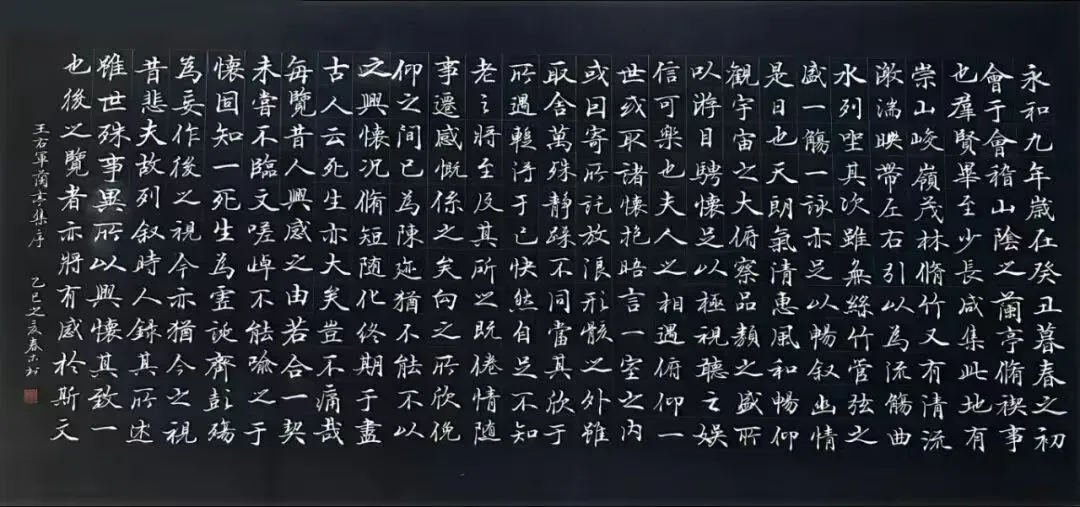 永和九年歲在癸丑暮春之初
會于會稽山陰之蘭亭脩禊事
也羣賢畢至少長咸集此地有
崇山峻嶺茂林脩竹又有清流
激湍暎帶左右引以為流觴曲
水列坐其次雖無絲竹管弦之
盛一觴一詠亦足以暢叙幽情
是日也天朗氣清惠風和暢仰
觀宇宙之大俯察品類之盛所
以游目騁懷足以極視聽之娛
信可樂也夫人之相遇俯仰一
世或取諸懷抱晤言一室之內
或因寄所託放浪形骸之外雖
取舍萬殊靜躁不同當其欣于
所遇輒得于己快然自足不知
老之將至及其所之既倦情隨
事遷感慨係之矣向之所欣俛
仰之間已為陳迹猶不能不以
之興懷況脩短隨化終期于盡
古人云死生亦大矣豈不痛哉
每覽昔人興感之由若合一契
未嘗不臨文嗟悼不能喻之于
懷固知一死生為虛誕齊彭殤
為妄作後之視今亦猶今之視
昔悲夫故列叙時人錄其所述
雖世殊事異所以興懷其致一
也後之覽者亦將有感於斯文
王右軍蘭亭集序 乙巳之